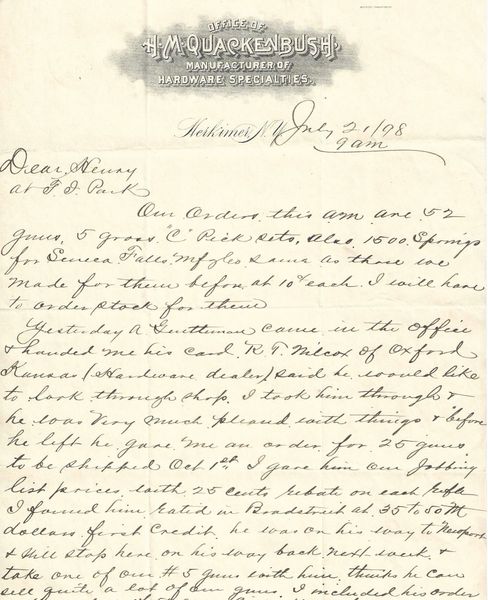 OFFICE OF
H. M. QUACKENBUSH.
MANUFACTURER OF
HARDWARE SPECIALTIES.
Herkimer, N.Y. July 21/98
9 am
Dear Henry
at T. I. Park
Our Orders this am are 52
guns, 5 gross "C" Pick sets, Also, 1500 Springs
for Seneca Falls Mfg Co same as those we
made for them before at 10¢ each. I will have
to order stock for them
Yesterday A Gentleman came in the office
& handed me his card R. T. Wilcox of Oxford
Kansas (Hardware dealer) said he would like
to look through shop. I took him through &
he was Very much pleased with things & before
he left he gave me an order for 25 guns
to be shipped Oct 1st I gave him our Jobbing
list prices with 25 cents rebate on each Rifle
I found him rated in Bradstreet at 35 to 50 M
dollars first Credit. he was on his way to Newport
& will stop here on his way back next week &
take one of our #5 guns with him, thinks he can
sell quite a lot of our guns. I included his order